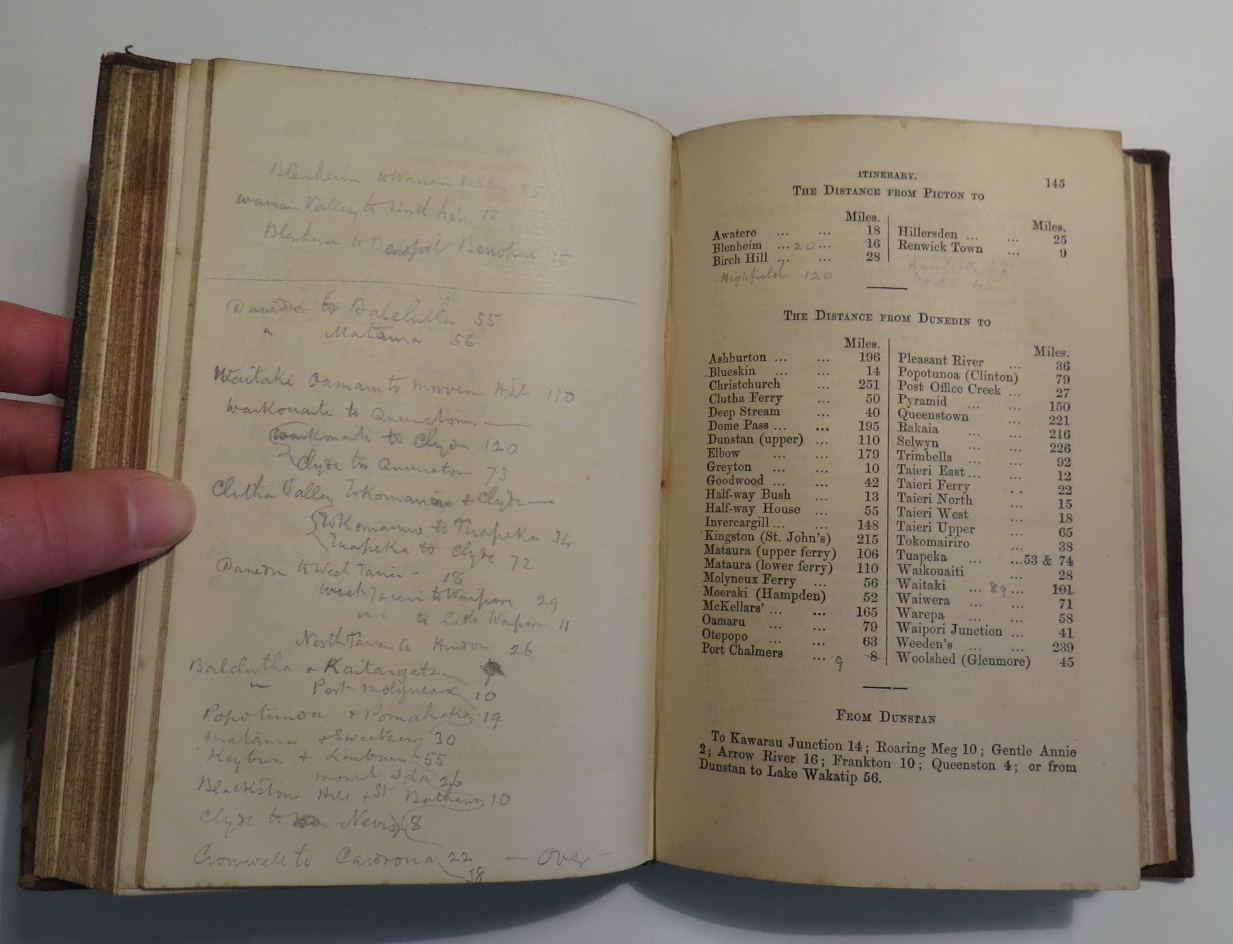 Blenheim to Wairau Valley
Wairau Valley to
Blenheim to Benopai
Dunedin to Balclutha 55
" Mataura 56
Waitaki Oamaru to Morven Hills 110
Waikouaiti to Queenstown —
Waikouaiti to Clyde 120
Clyde to Queenstown 73
Clutha Valley Tokomairiro & Clyde —
Tokomairiro to Tuapeka 36
Tuapeka to Clyde 72
Dunedin to West Taieri - 18
West Taieri to Waipori 29
to Lake Waipori 11
North Taieri to Hindon 26
Balclutha & Kaitangata 9
" Port Molyneux 10
Popotunoa & Pomahaka 19
Mataura & Switzers 30
Kyeburn & Linburn 55
Mount Ida 26
Blackstone Hill & St Bathans 10
Clyde to Nevis 8
Cromwell to Cardrona 22
18
— Over —
ITINERARY. 145
THE DISTANCE FROM PICTON TO
Miles.
Awatere ... ... 18
Blenheim ... 20 ... 16
Birch Hill ... ... 28
Highfield 120
Miles.
Hillersden ... ... 25
Renwick Town ... 9
THE DISTANCE FROM DUNEDIN TO
Miles.
Ashburton ... ... 196
Blueskin ... ... 14
Christchurch ... 251
Clutha Ferry ... 50
Deep Stream ... 40
Dome Pass ... ... 195
Dunstan (upper) ... 110
Elbow ... ... 179
Greyton ... ... 10
Goodwood ... ... 42
Half-way Bush ... 13
Half-way House ... 55
Invercargill ... ... 148
Kingston (St. John's) 215
Mataura (upper ferry) 106
Mataura (lower ferry) 110
Molyneux Ferry ... 56
Moeraki (Hampden) 52
McKellars' ... ... 165
Oamaru ... ... 79
Otepopo ... ... 63
Port Chalmers ... 9 8
Miles.
Pleasant River ... 36
Popotunoa (Clinton) 79
Post Office Creek ... 27
Pyramid ... ... 150
Queenstown ... 221
Rakaia ... ... 216
Selwyn ... ... 226
Trimbells ... ... 92
Taieri East ... ... 12
Taieri Ferry .. 22
Taieri North ... 15
Taieri West ... 18
Taieri Upper ... 65
Tokomairiro ... 38
Tuapeka ... ...53 & 74
Waikouaiti ... 28
Waitaki ... 89 ... 101
Waiwera ... ... 71
Warepa ... ... 58
Waipori Junction ... 41
Weeden's ... ... 239
Woolshed (Glenmore) 45
FROM DUNSTAN
To Kawarau Junction 14; Roaring Meg 10; Gentle Annie
2; Arrow River 16; Frankton 10; Queenston 4; or from
Dunstan to Lake Wakatip 56.